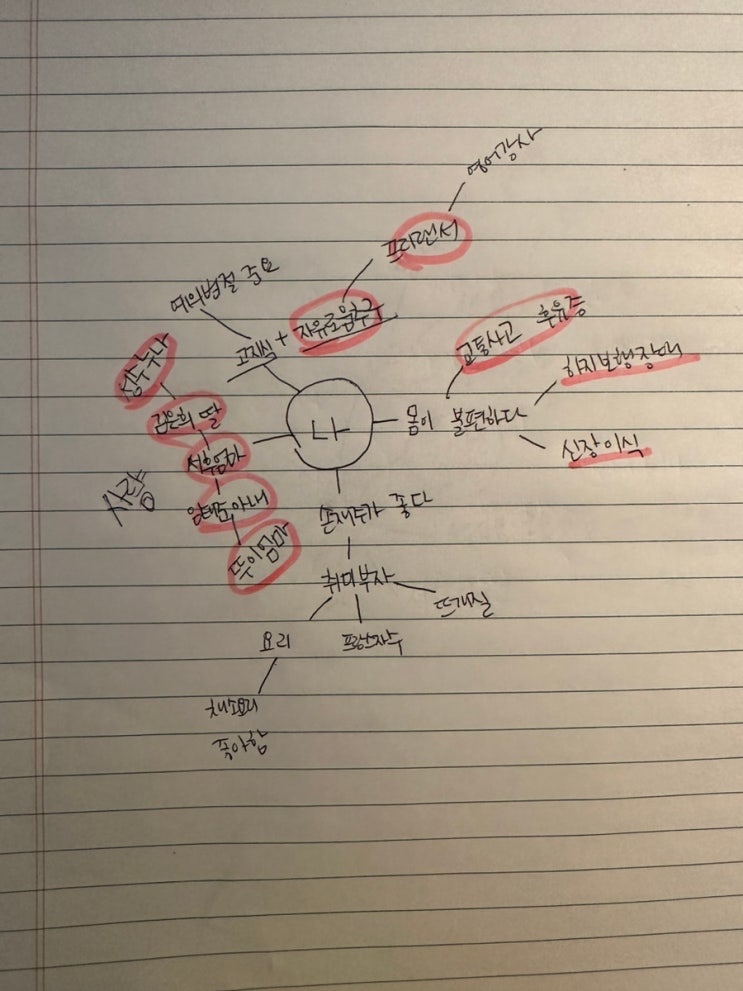 영어강사
프리랜서
예의범절 중요
고지식 + 자유로움추구
교통사고 후유증
성수누나
하지보행장애
김은희 딸
나
몸이 불편하다
서후엄마
신장이식
사랑
아내
손재주가 좋다
뚜이엄마
취미부자
뜨개질
요리
프랑스자수
채소요리
좋아함